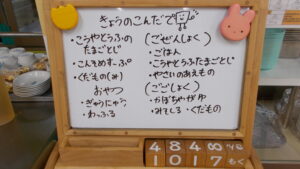 きょうのこんだて
・こうやとうふの
たまごとじ
・こんそめすーぷ
・くだもの
おやつ
・ぎゅうにゅう
・わっふる
(ごぜんしょく)
・ごはん
・こうやとうふたまごとじ
・やさいのあえもの
(ごごしょく)
・かぼちゃがゆ
・みそしる・くだもの
4 8 4
10 17 もく